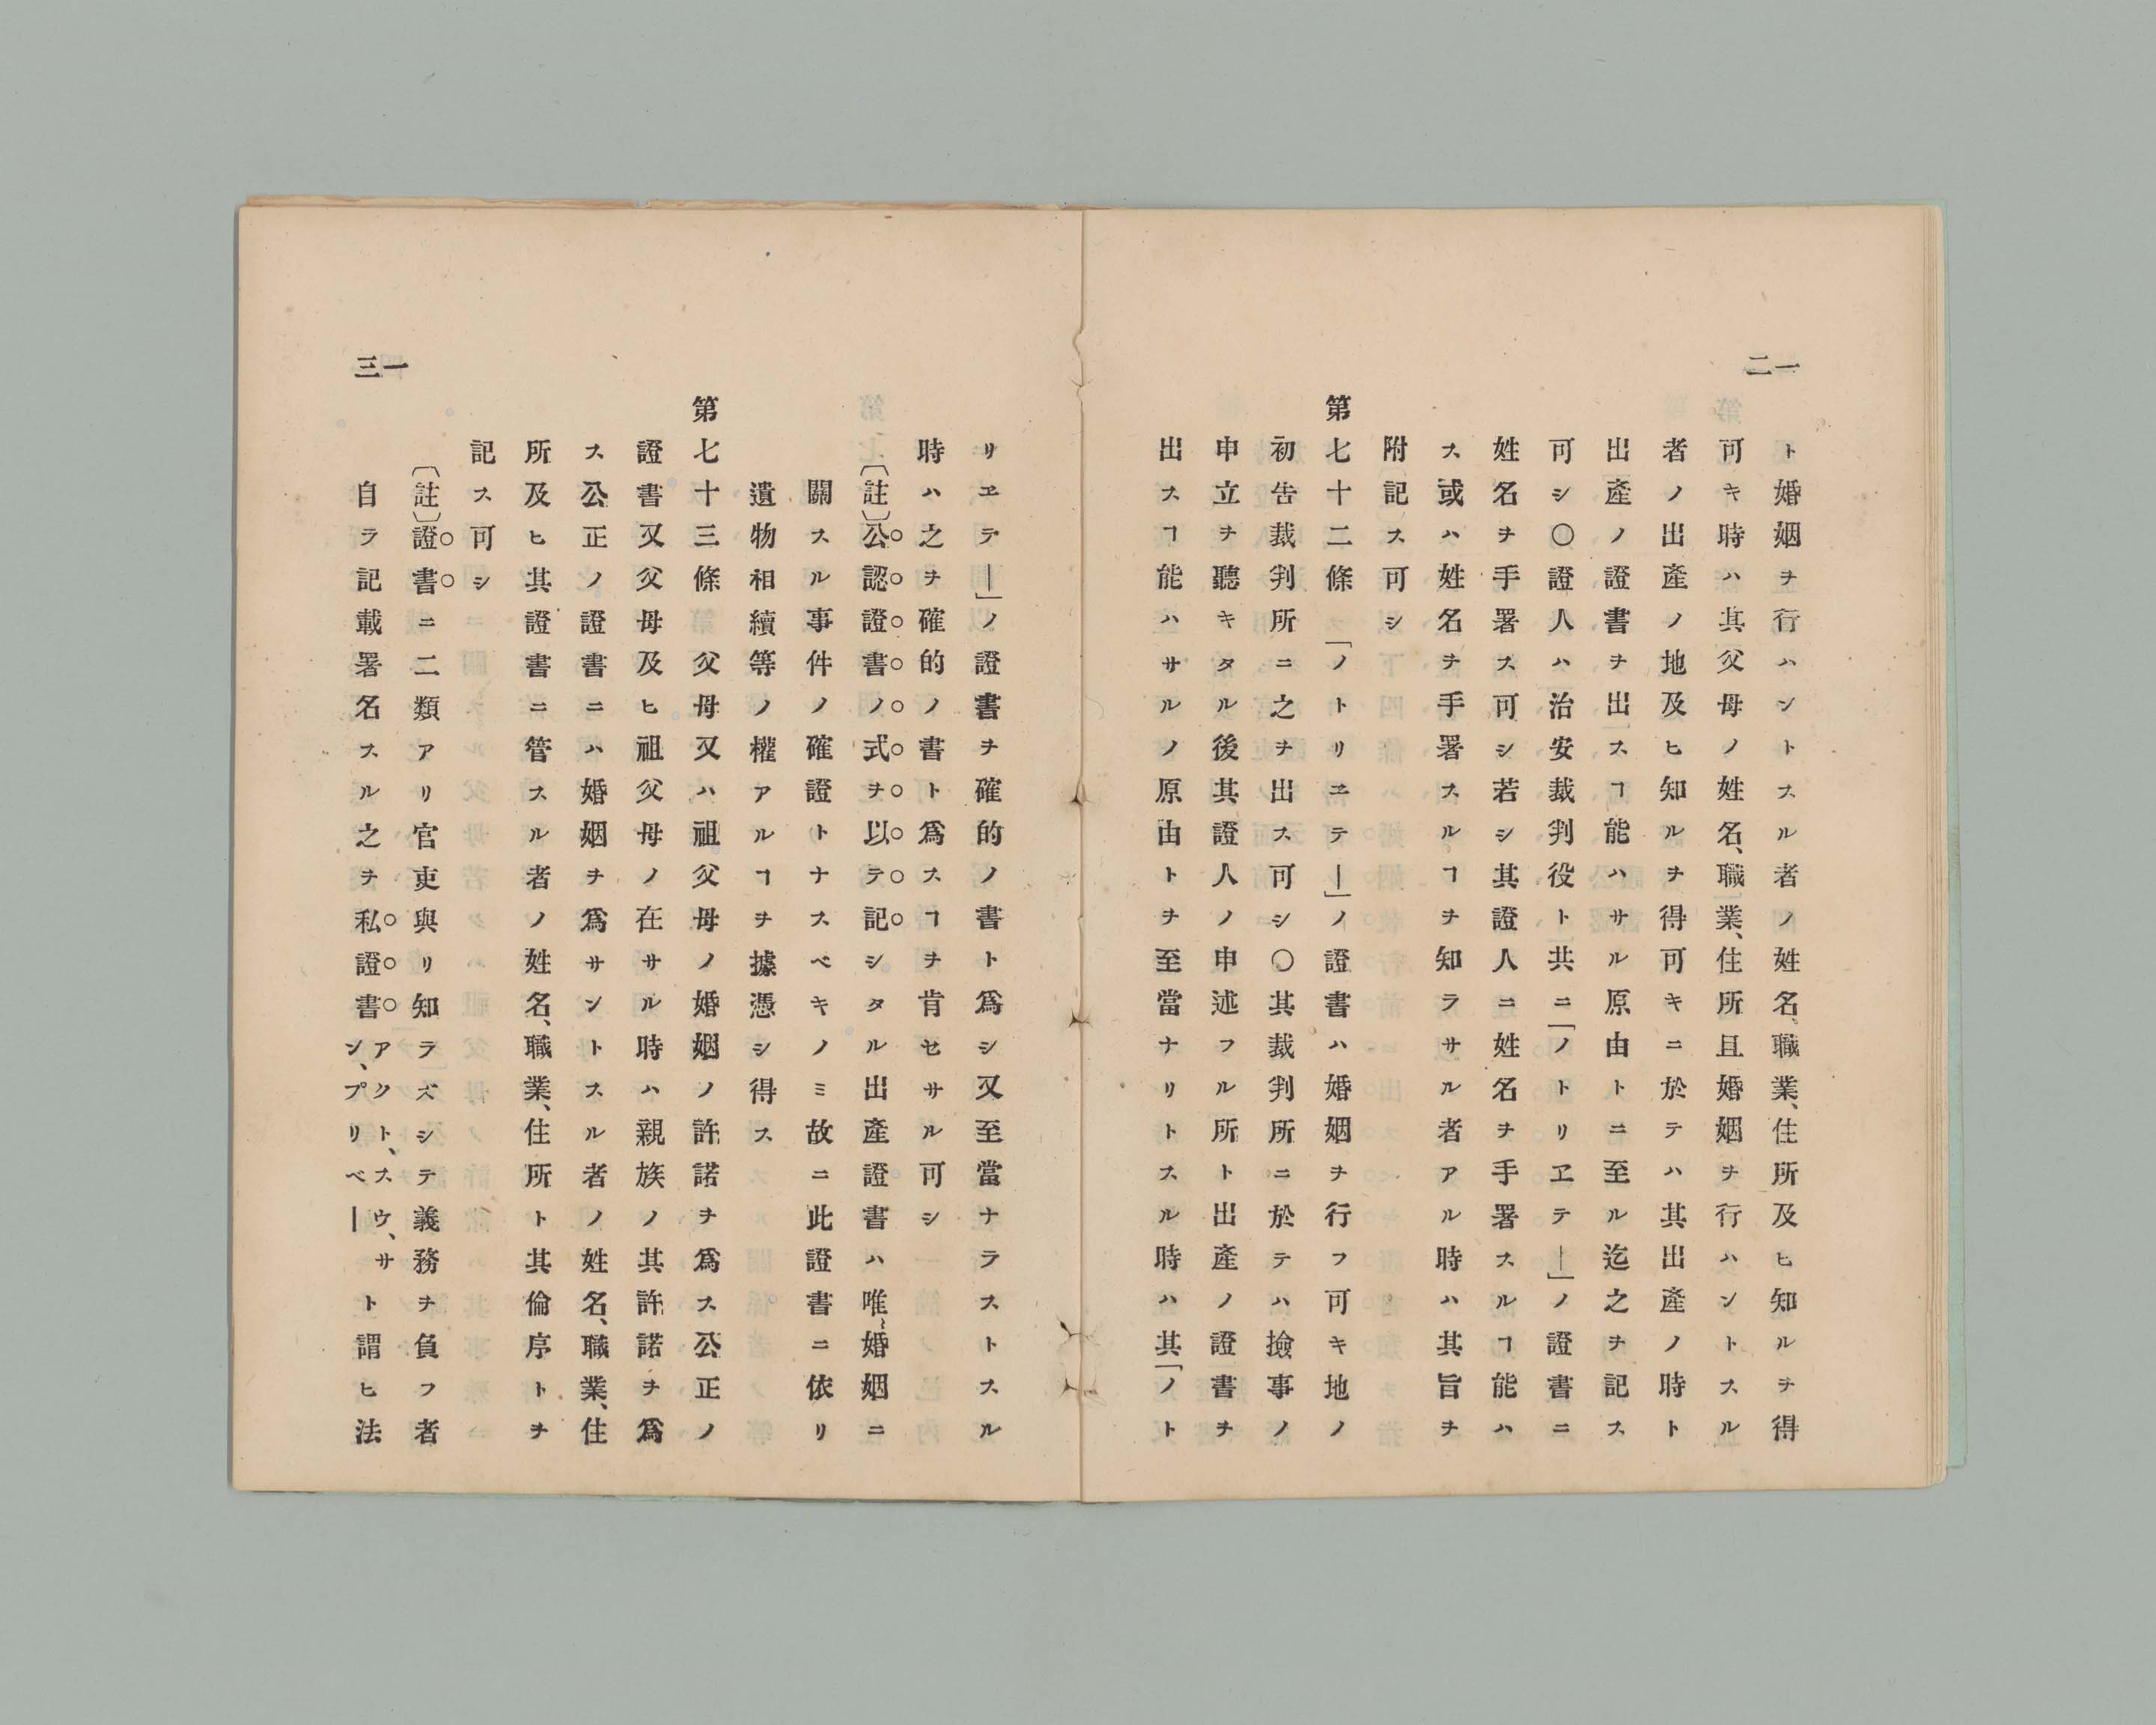 一二
ト婚姻ヲ行ハントスル者ノ姓名、職業、住所及ヒ知ルヲ得
可キ時ハ其父母ノ姓名、職業、住所且婚姻ヲ行ハントスル
者ノ出產ノ地及ヒ知ルヲ得可キニ於テハ其出產ノ時ト
出產ノ證書ヲ出スヿ能ハサル原由トニ至ル迄之ヲ記ス
可シ〇證人ハ治安裁判役ト共ニ「ノトリヱテー」ノ證書ニ
姓名ヲ手署ス可シ若シ其證人ニ姓名ヲ手署スルヿ能ハ
ス或ハ姓名ヲ手署スルヿヲ知ラサル者アル時ハ其旨ヲ
附記ス可シ
第七十二條「ノトリヱテー」ノ證書ハ婚姻ヲ行フ可キ地ノ
初告裁判所ニ之ヲ出ス可シ〇其裁判所ニ於テハ撿事ノ
申立ヲ聽キタル後其證人ノ申述フル所ト出產ノ證書ヲ
出スヿ能ハサルノ原由トヲ至當ナリトスル時ハ其「ノト
リヱテー」ノ證書ヲ確的ノ書ト爲シ又至當ナラストスル
時ハ之ヲ確的ノ書ト爲スヿヲ肯セサル可シ
〔註〕公認證書ノ式ヲ以テ記シタル出產證書ハ唯〻婚姻ニ
關スル事件ノ確證トナスベキノミ故ニ此證書ニ依リ
遺物相續等ノ權アルヿヲ據憑シ得ス
第七十三條 父母又ハ祖父母ノ婚姻ノ許諾ヲ爲ス公正ノ
證書又父母及ヒ祖父母ノ在サル時ハ親族ノ其許諾ヲ爲
ス公正ノ證書ニハ婚姻ヲ爲サントスル者ノ姓名、職業、住
所及ヒ其證書ニ管スル者ノ姓名、職業、住所ト其倫序トヲ
記ス可シ
〔註〕證書ニ二類アリ官吏與リ知ラズシテ義務ヲ負フ者
自ラ記載署名スル之ヲ私證書アクト、スウ、サン、プリベートト謂ヒ法
一三